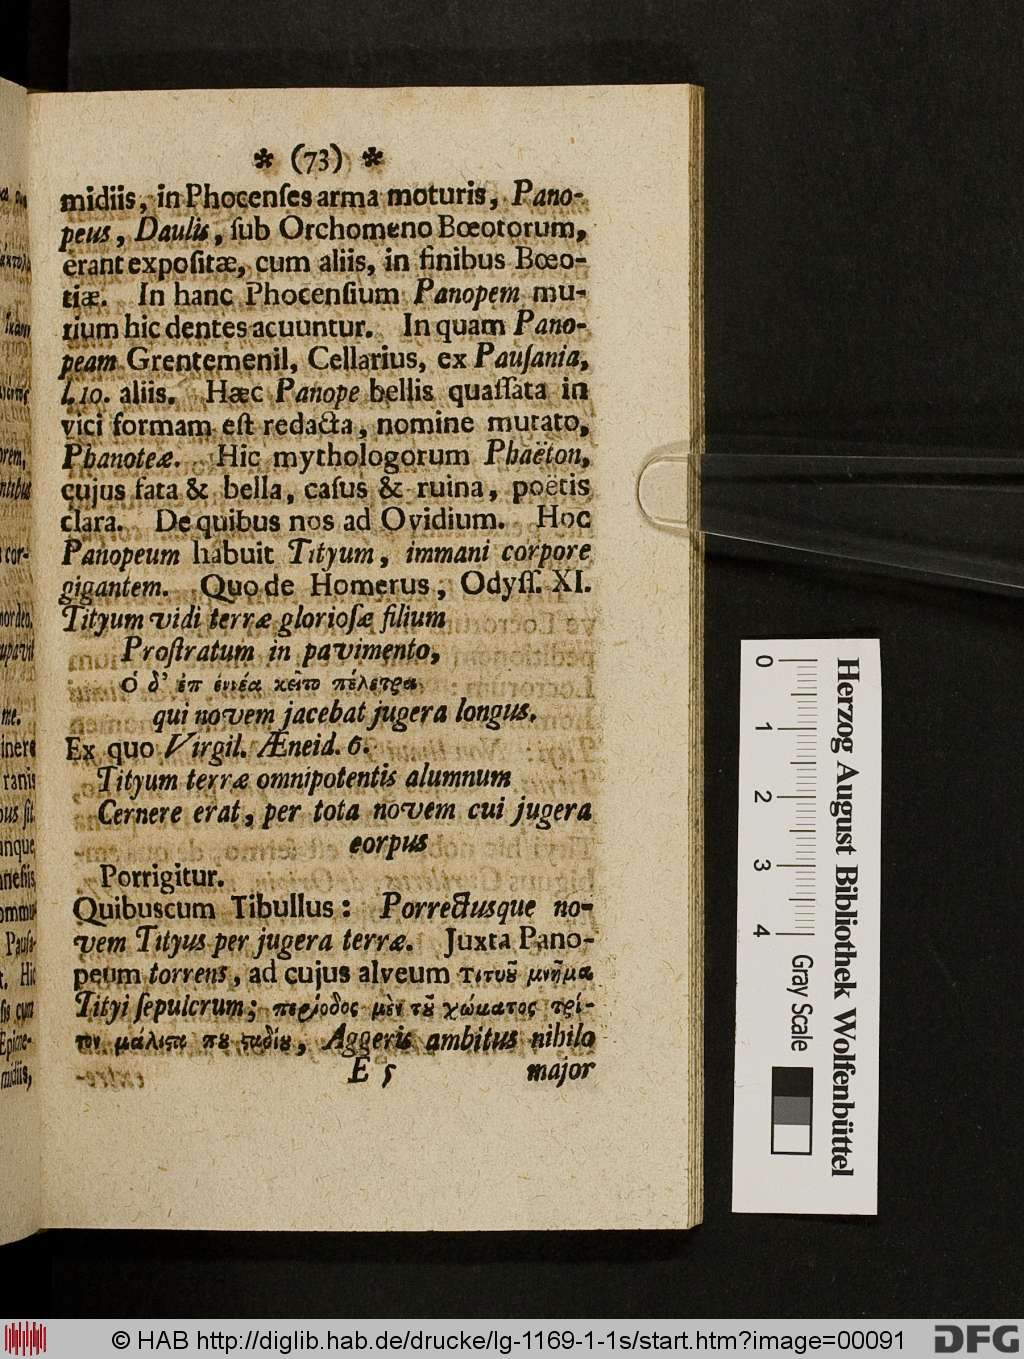 * (73) *
midiis, in Phocenſes arma moturis, Pano-
peus, Daulis, ſub Orchomeno Bœotorum,
erant expoſitæ, cum aliis, in finibus Bœo-
tiæ. In hanc Phocenſium Panopem mu-
rium hic dentes acuuntur. In quam Pano-
peam Grentemenil, Cellarius, ex Pauſania,
l. 10. aliis. Hæc Panope bellis quaſſata in
vici formam eſt redacta, nomine mutato,
Phanoteæ. Hic mythologorum Phaëton,
cujus fata & bella, caſus & ruina, poëtis
clara. De quibus nos ad Ovidium. Hoc
Panopeum habuit Tityum, immani corpore
gigantem. Quo de Homerus, Odyſſ. XI.
Tityum vidi terræ glorioſæ filium
Proſtratum in pavimento,
ὁ δ' ἐπ ἐννέα κεῖτο πέλετρα
qui novem jacebat jugera longus.
Ex quo Virgil. Æneid. 6.
Tityum terræ omnipotentis alumnum
Cernere erat, per tota novem cui jugera
eorpus
Porrigitur.
Quibuscum Tibullus: Porrectusque no-
vem Tityus per jugera terræ. Juxta Pano-
peum torrens, ad cujus alveum Τιτυȣ͂ μνῆμα
Tityi ſepulcrum; περίοδος μὲν τȣ͂ χώματος τρί-
τον μάλιϛα πȣ ϛαδίȣ, Aggeris ambitus nihilo
E 5 major
Herzog August Bibliothek Wolfenbüttel
0 1 2 3 4 Gray Scale
© HAB http://diglib.hab.de/drucke/lg-1169-1-1s/start.htm?image=00091
DFG